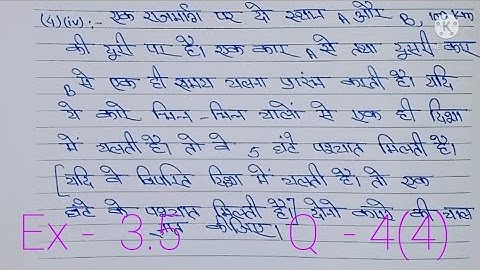 (4)(iv):- एक राजमार्ग पर दो स्थान A और B, 100 km
की दूरी पर है। एक कार A से तथा दूसरी कार
B से एक ही समय चलना प्रारंभ करती है। यदि
ये कारें भिन्न-भिन्न चालों से एक ही दिशा
में चलती है। तो वे 5 घंटे पश्चात मिलती है।
[यदि वे विपरित दिशा में चलती है। तो एक
घंटे के पश्चात मिलती है।] दोनो कारो की चाल
ज्ञात कीजिए।
Ex - 3.5 Q - 4(4)